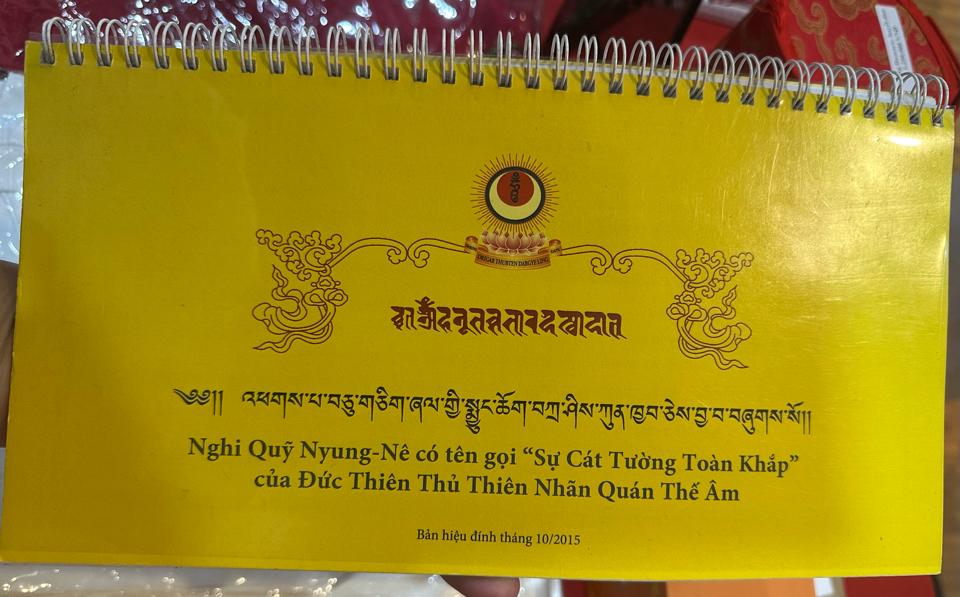 DRIGAR THUBTEN DARGYE LING
༄༅།། འཕགས་པ་བཅུ་གཅིག་ཞལ་གྱི་སྨྱུང་ཆོག་བཀྲ་ཤིས་ཀུན་ཁྱབ་ཅེས་བྱ་བ་བཞུགས་སོ།།
Nghi Quỹ Nyung-Nê có tên gọi “Sự Cát Tường Toàn Khắp”
của Đức Thiên Thủ Thiên Nhãn Quán Thế Âm
Bản hiệu đính tháng 10/2015